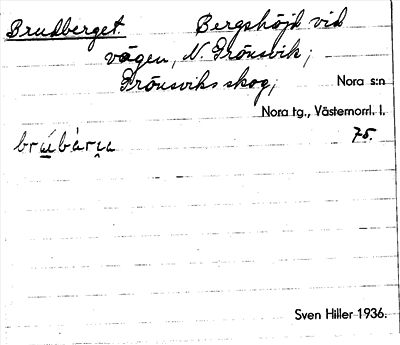 Brudberget. Bergshöjd vid
vägen, N. Grönsvik;
Grönsviks skog, Nora s:n
Nora tg., Västernorrl. l.
75.
Sven Hiller 1936.